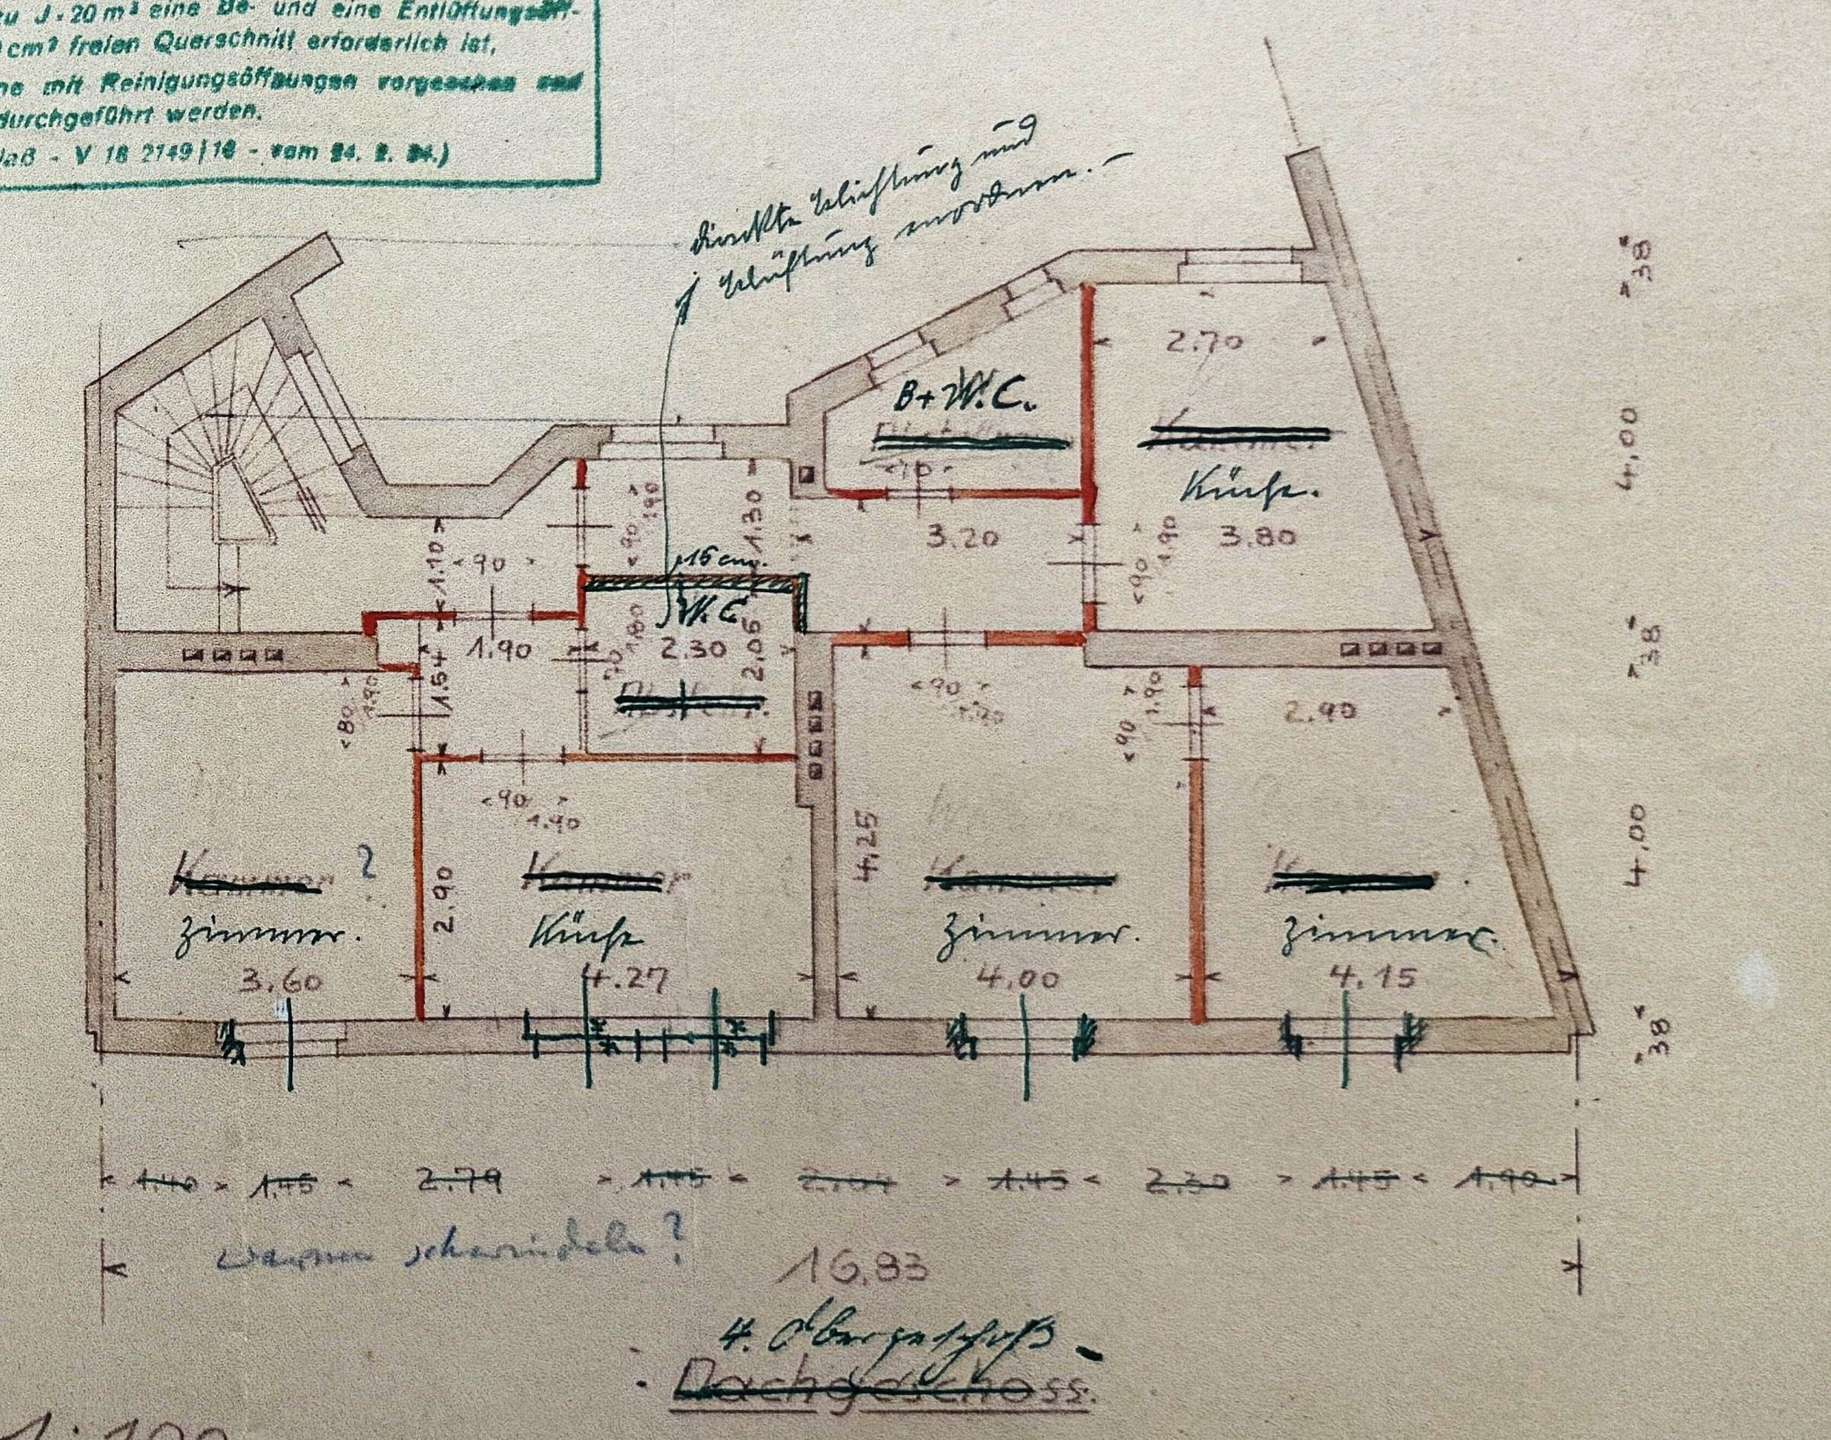 zu J. 20 m³ eine Be- und eine Entlüftungsöff-
cm² freien Querschnitt erforderlich ist,
ne mit Reinigungsöffnungen vorgesehen und
durchgeführt werden.
laß - V 18 2149/16 - vom 24. 2. 34.)
direkte Belichtung und
Belüftung anordnen.-
38
2.70
B+W.C.
Kammer
Küche.
4,00
<70>
90
1.90
1.30
3.20
1.90
90
3.80
1.10
<90 >
15 cm.
W.C.
1.90
1.80
70
2.30
2.05
38
1.54
80
1.90
<90 >
1.90
90
1.90
2.90
<90 >
1.90
4,25
4,00
Kammer ?
Kammer
Kammer
Kammer
2.90
Zimmer.
Küche
Zimmer.
Zimmer.
3.60
4.27
4.00
4.15
38
1.40 1.45 2.79 1.45 1.45 2.30 1.45 1.90
warum schwindeln?
16,83
4. Obergeschoß
Dachgeschoss.
1:100